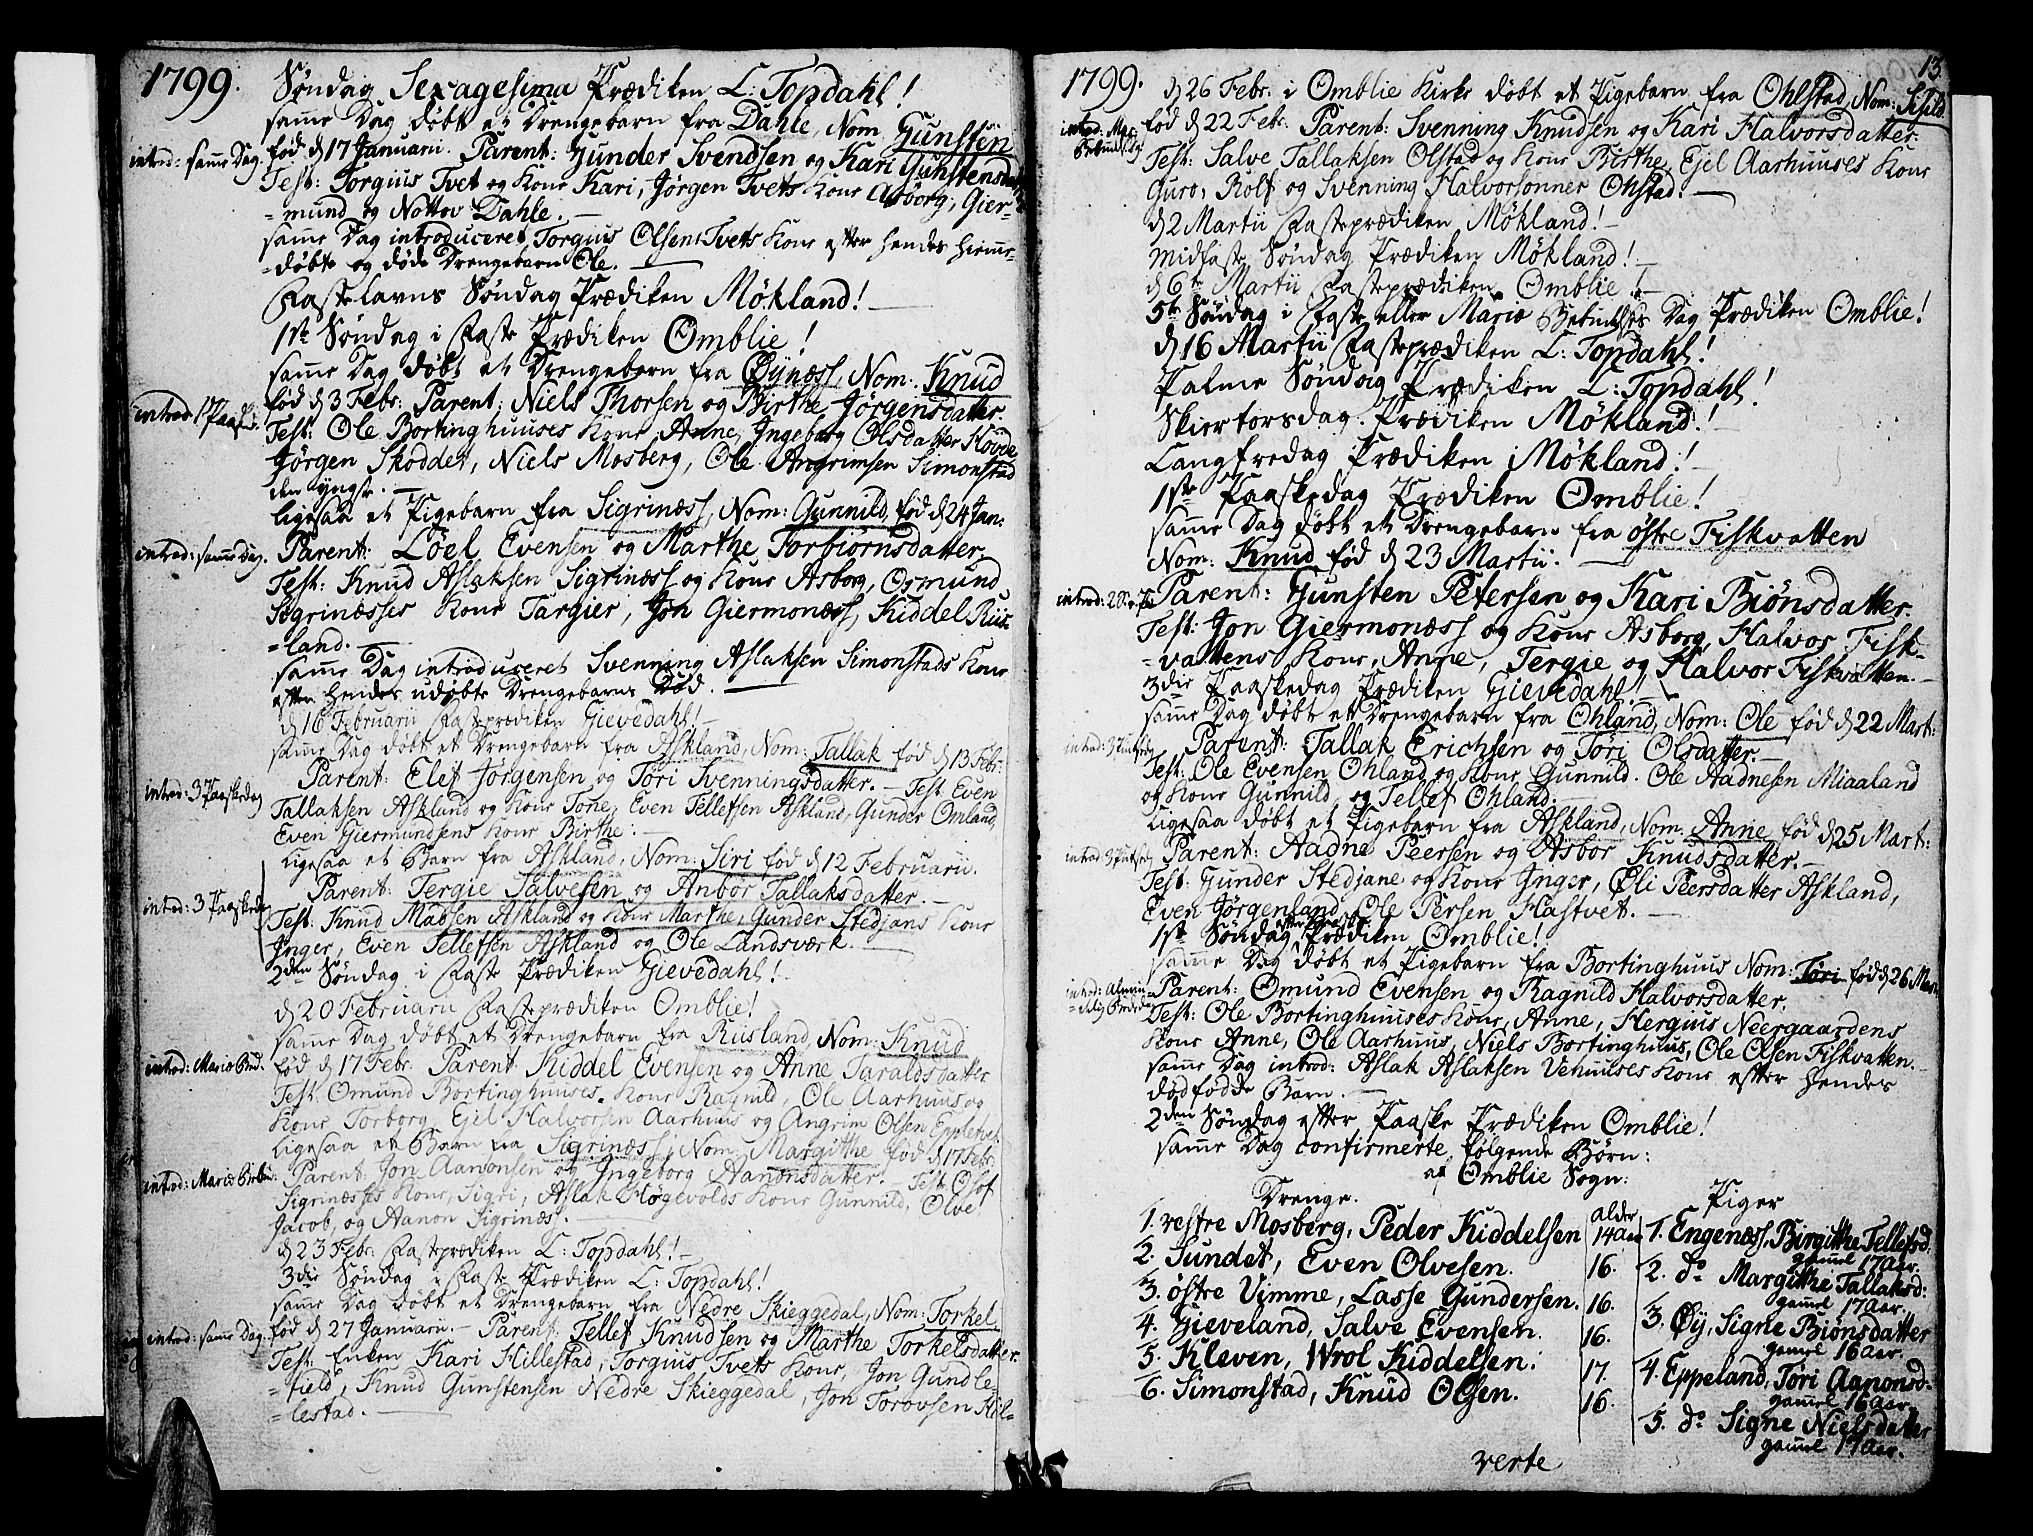 1799.
Søndag Sexagesima Prædiken L: Topdahl!
samme Dag døbt et Drengebarn fra Dahle, Nom: Gunsten
introd: samme Dag.
fød d 17 Januarii. Parent: Gunder Svendsen og Kari Gunstensdatt
Test: Torgius Tvet og Kone Kari, Jørgen Tvets Kone Asborg, Gier-
=mund og Nottov Dahle. —
samme Dag introduceret Torgius Olsens Tvets Kone efter hendes hiemme-
=døbte og døde Drengebarn Ole. —
Fastelavns Søndag Prædiken Møkland! —
1ste Søndag i Faste Prædiken Omblie!
samme Dag døbt et Drengebarn fra Øynæss, Nom: Knud
introd: 1 Paasked:
fød d 3 Febr: Parent: Niels Thorsen og Birthe Jørgensdatter.
Test: Ole Bortinghuuses Kone Anne, Ingeborg Olsdatter Hovde,
Jørgen Skoddet, Niels Mosberg, Ole Angrimsen Simonstad
den yngste. —
ligesaa et Pigebarn fra Sigrinæss, Nom: Gunnild, fød d 24 Jan:
introd: samme Dag.
Parent: Løel Evensen og Marthe Torbiørnsdatter.
Test: Knud Aslaksen Sigrinæss og Kone Asborg, Osmund
Sigrinæsses Kone Targier, Jon Giermonæss, Kiddel Riis
=land. —
samme Dag introduceret Svenning Aslaksen Simonstads Kone
efter hendes udøbte Drengebarns Død. —
d 16 Februarii Fasteprædiken Gievedahl! —
samme Dag døbt et Drengebarn fra Askland, Nom: Tallak fød d 13 Febr:
introd: 3 Paaskedag
Parent: Elef Jørgensen og Tøri Svenningsdatter. — Test: Even
Tallaksen Askland og Kone Tone, Even Tellefsen Askland, Gunder Omland,
Even Giermundsens Kone Birthe. —
ligesaa et Barn fra Askland, Nom: Siri fød d 12 Februarii.
introd: 3 Paaskeda
Parent: Tergie Salvesen og Anbør Tallaksdatter. —
Test: Knud Madsen Askland og Kone Marthe, Gunder Stedjans Kone
Inger, Even Tellefsen Askland og Ole Landsværk. —
2den Søndag i Faste Prædiken Gievedahl!
d 20 Februarii Fasteprædiken Omblie!
samme Dag døbt et Drengebarn fra Riisland, Nom: Knud
introd: Mariæ Bud.
fød d 17 Febr. Parent: Kiddel Evensen og Anne Taraldsdatter
Test: Omund Bortinghuuses Kone Ragnild, Ole Aarhuus og
Kone Torborg, Ejel Halvorsen Aarhuus og Angrim Olsen Eppletvet
ligesaa et Barn fra Sigrinæss, Nom: Margithe fød d 17 Febr:
introd: Mariæ Bebu:
Parent: Jon Aanonsen og Ingeborg Aanonsdatter. — Test: Osof
Sigrinæsses Kone, Sigri, Aslak Høgevolds Kone Gunnild, Olve
Jacob, og Aanon Sigrinæss. —
d 23 Febr: Fasteprædiken L: Topdahl! —
3die Søndag i Faste Prædiken L: Topdahl!
samme Dag døbt et Drengebarn fra Nedre Skieggedal, Nom: Torkel
introd: samme Dag.
fød d 27 Januarii. — Parent: Tellef Knudsen og Marthe Torkelsdatter.
Test: Enken Kari Hillestad, Torguis Tvets Kone, Jon Gundle-
=field, Knud Gunstensen Nedre Skieggedal, Jon Torovsen Hil-
=lestad. —
1799.
13.
d 26 Febr. i Omblie Kirke døbt et Pigebarn fra Ohlstad, Nom: Sehild
introd: Mar:
Bebudelsdg
fød d 22 Febr. Parent: Svenning Knudsen og Kari Halvorsdatter.
Test: Salve Tallaksen Olstad og Kone Birthe, Ejel Aarhuuses Kone
Guro, Rolf og Svenning Halvorsønner Ohstad. —
d 2 Martii Fasteprædiken Møkland! —
midfaste Søndag Prædiken Møkland! —
d 6te Martii Fasteprædiken Omblie! —
5te Søndag i Faste eller Mariæ Bebudelses Dag Prædiken Omblie!
d 16 Martii Fasteprædiken L: Topdahl!
Palme Søndag Prædiken L: Topdahl!
Skiertorsdag Prædiken Møkland! —
Langfredag Prædiken Møkland! —
1ste Paaskedag Prædiken Omblie!
samme Dag døbt et Drengebarn fra østre Fiskvatten
Nom: Knud fød d 23 Martii. —
Parent: Gunsten Petersen og Kari Biønsdatter.
Test: Jon Giermonæss og Kone Asborg, Halvor Fisk-
=vattens Kone, Anne, Tergie og Halvor Fiskvatten. —
3die Paaskedag Prædiken Gievedahl!
samme Dag døbt et Drengebarn fra Ohland, Nom: Ole fød d 22 Mart:
Parent: Tallak Erichsen og Tøri Olsdatter. —
Test: Ole Evensen Ohland og Kone Gunnild. Ole Aadnesen Miaaland
og Kone Gunnild, og Tellef Ohland. —
ligesaa døbt et Pigebarn fra Askland, Nom: Anne fød d 25 Mart:
Parent: Aadne Peersen og Asbor Knudsdatter. —
Test: Gunder Stedjane og Kone Inger, Øli Peersdatter Askland,
Even Jørgenland, Ole Persen Hastvet. —
1ste Søndag efter Paaske Prædiken Omblie!
samme Dag døbt et Pigebarn fra Bortinghuus Nom: Tøri fød d 26 Mar:
introd: Almin
=delig Bededa
Parent: Omund Evensen og Ragnild Halvorsdatter.
Test: Ole Bortinghuuses Kone, Anne, Hergius Neergaardens
Kone Anne, Ole Aarhuus, Niels Bortinghuus, Ole Olsen Fiskvatten. —
samme Dag introd: Aslak Aslaksen Vehuuses Kone efter hendes
dødfødde Barn. —
2den Søndag efter Paaske Prædiken Omblie!
samme Dag confirmerte følgende Børn:
af Omblie Sogn:
Drenge.
alder
1. vestre Mosberg, Peder Kiddelsen 14 aar
2. Sundet, Even Olvesen. 16.
3. østre Vimme, Lasse Gundersen. 16.
4. Gieveland, Salve Evensen. 16.
5. Kleven, Wrol Kiddelsen. 17.
6. Simonstad, Knud Olsen. 16.
Piger
1. Engenæss, Birgithe Tellefsd.
gamel 17 Aar.
2. do Margithe Tallaksd:
gamel 17 Aar.
3. Øy, Signe Biønsdatter
gamel 16 Aar.
4. Eppeland, Tøri Aanonsd:
gamel 16 Aar.
5. do Signe Nielsdatter
gamel 17 Aar.
verte